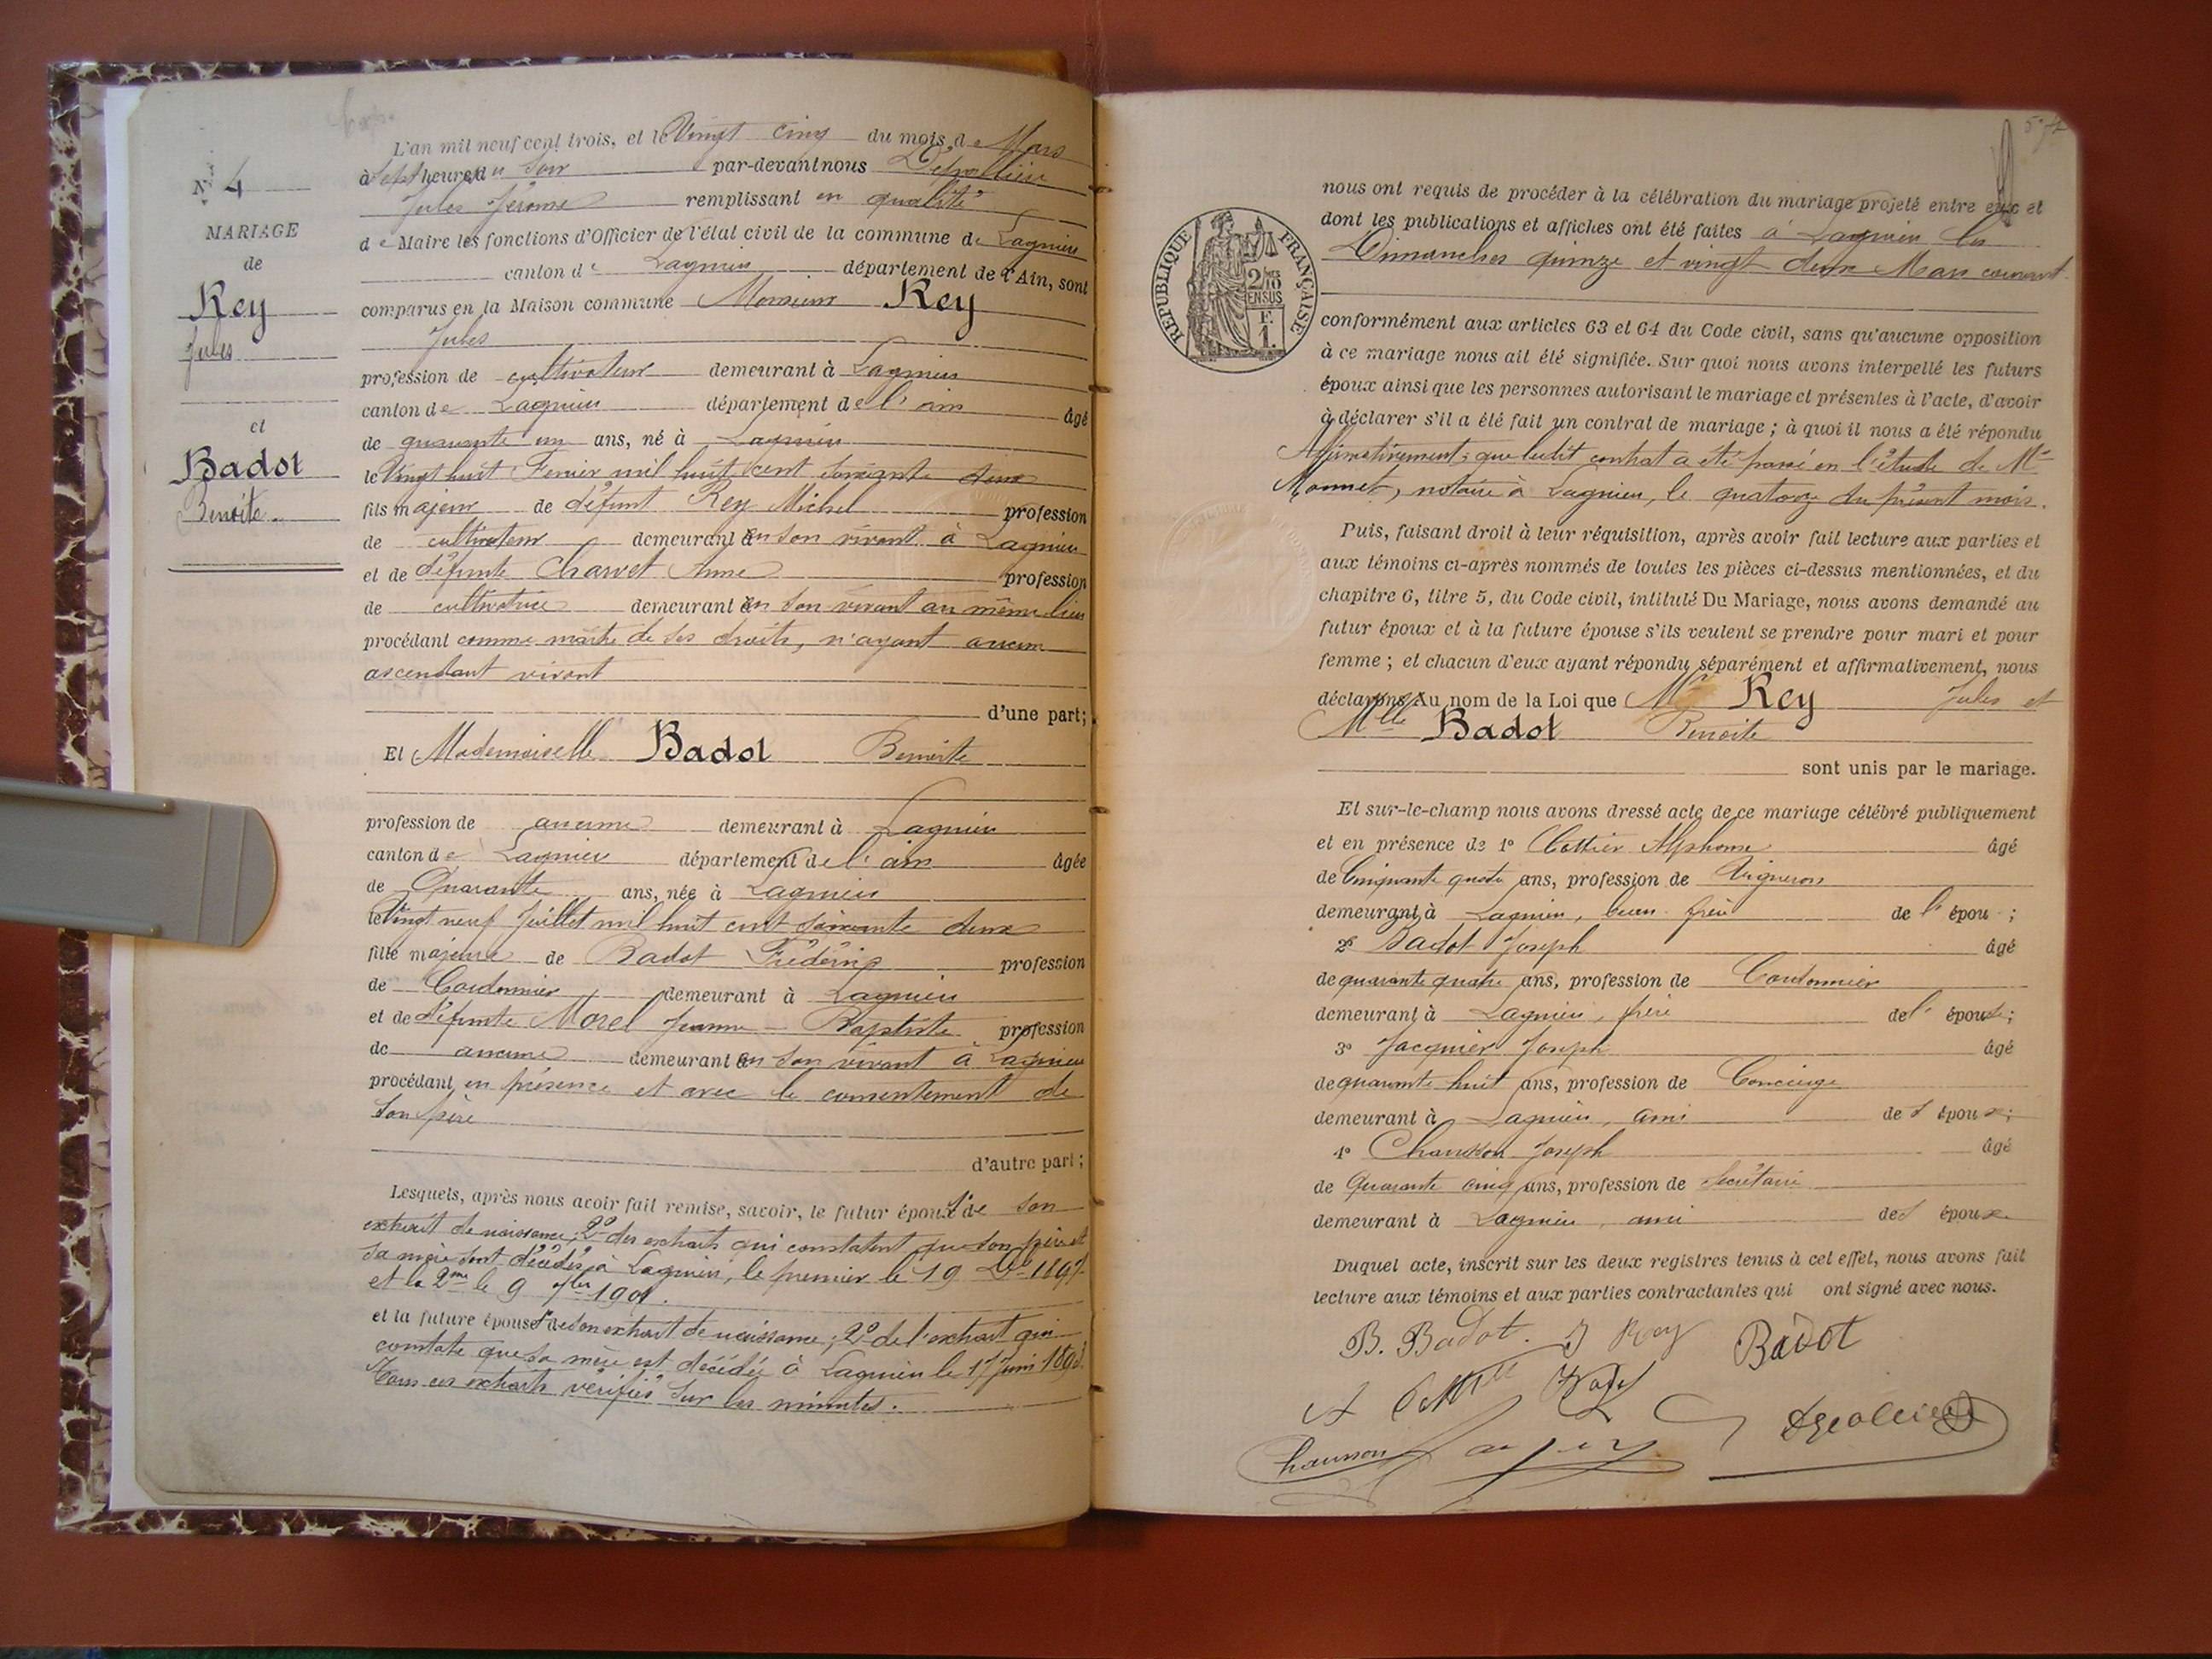 N° 4
MARIAGE
de
Rey
Jules
et
Badot
Benoite
L'an mil neuf cent trois, et le Vingt cinq du mois de Mars
à Sept heures du Soir par-devant nous
Jules Jérome remplissant en qualité
de Maire les fonctions d'Officier de l'état civil de la commune de Lagnieu
canton de Lagnieu département de l'Ain, sont
comparus en la Maison commune Monsieur Rey
Jules
profession de cultivateur demeurant à Lagnieu
canton de Lagnieu département de l'ain âgé
de quarante un ans, né à Lagnieu
le Vingt huit Fevrier mil huit cent soixante deux
fils majeur de défunt Rey Michel profession
de cultivateur demeurant en son vivant à Lagnieu
et de défunte Charvet Anne profession
de cultivatrice demeurant en son vivant au même lieu
procédant comme maître de ses droits, n'ayant aucun
ascendant vivant
d'une part;
Et Mademoiselle Badot Benoite
profession de aucune demeurant à Lagnieu
canton de Lagnieu département de l'ain âgée
de Quarante ans, née à Lagnieu
le Vingt neuf Juillet mil huit cent soixante deux
fille majeure de Badot Frédéric profession
de Cordonnier demeurant à Lagnieu
et de défunte Morel Jeanne-Baptiste profession
de aucune demeurant en son vivant à Lagnieu
procédant en présence et avec le consentement de
son père
d'autre part;
Lesquels, après nous avoir fait remise, savoir, le futur époux 1° de son
extrait de naissance; 2° des extraits qui constatent que son père et
sa mère sont décédés à Lagnieu, le premier le 19
et la 2me le 9 7bre 1901.
et la future épouse 1° de son extrait de naissance; 2° de l'extrait qui
constate que sa mère est décédée à Lagnieu le 17 Juin
Tous ces extraits vérifiés sur les minutes.
nous ont requis de procéder à la célébration du mariage projeté entre eux et
dont les publications et affiches ont été faites à Lagnieu les
Dimanches quinze et vingt deux Mars courant
RÉPUBLIQUE FRANÇAISE
2/10 EN SUS
F. 1.
conformément aux articles 63 et 64 du Code civil, sans qu'aucune opposition
à ce mariage nous ait été signifiée. Sur quoi nous avons interpellé les futurs
époux ainsi que les personnes autorisant le mariage et présentes à l'acte, d'avoir
à déclarer s'il a été fait un contrat de mariage; à quoi il nous a été répondu
Affirmativement; que ledit contrat a été passé en l'étude de Me
Monnet, notaire à Lagnieu, le quatorze du présent mois.
Puis, faisant droit à leur réquisition, après avoir fait lecture aux parties et
aux témoins ci-après nommés de toutes les pièces ci-dessus mentionnées, et du
chapitre 6, titre 5, du Code civil, intitulé Du Mariage, nous avons demandé au
futur époux et à la future épouse s'ils veulent se prendre pour mari et pour
femme; et chacun d'eux ayant répondu séparément et affirmativement, nous
déclarons Au nom de la Loi que Mr Rey Jules et
Mlle Badot Benoite
sont unis par le mariage.
Et sur-le-champ nous avons dressé acte de ce mariage célébré publiquement
et en présence de 1° Cottier Alphonse âgé
de Cinquante quatre ans, profession de Vigneron
demeurant à Lagnieu, beau-frère de l'épou ;
2° Badot Joseph âgé
de quarante quatre ans, profession de Cordonnier
demeurant à Lagnieu, frère de l'épouse;
3° Jacquier Joseph âgé
de quarante huit ans, profession de Concierge
demeurant à Lagnieu, ami des époux;
4° Chausson Joseph âgé
de Quarante cinq ans, profession de Secrétaire
demeurant à Lagnieu, ami des époux.
Duquel acte, inscrit sur les deux registres tenus à cet effet, nous avons fait
lecture aux témoins et aux parties contractantes qui ont signé avec nous.
B. Badot. J Rey Badot
Chausson